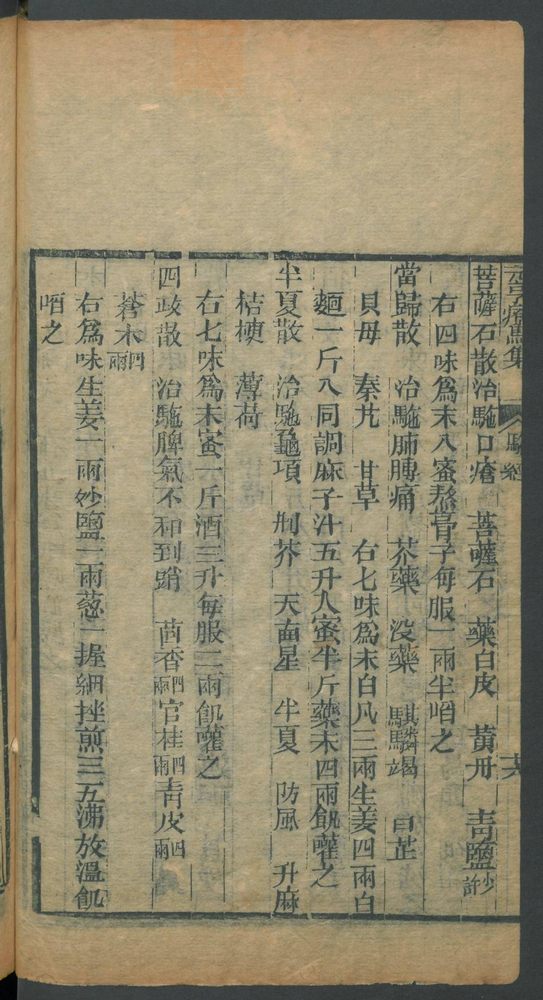 元亨療馬集　駝經　十六
菩薩石散治駞口瘡　菩薩石　藥白皮　黄丹　青鹽少許
右四味爲末入蜜熬膏子每服一兩半啗之
當歸散　治駞肺䏶痛　芥藥　没藥　騏驎竭　白芷
貝母　秦艽　甘草　右七味爲末白凡三兩生姜四兩白
麵一斤入同調麻子汁五升人蜜半斤藥末四兩飢灌之
半夏散　治駞龜項　荆芥　天南星　半夏　防風　升麻
桔梗　薄荷
右七味爲末蜜一斤酒三升每服二兩飢灌之
四歧散　治駞脾氣不和到蹄　茴香四兩官桂四兩青皮四兩
蒼术四兩
右爲味生姜一兩妙鹽二兩葱一握細挫煎三五沸放温飢
啗之